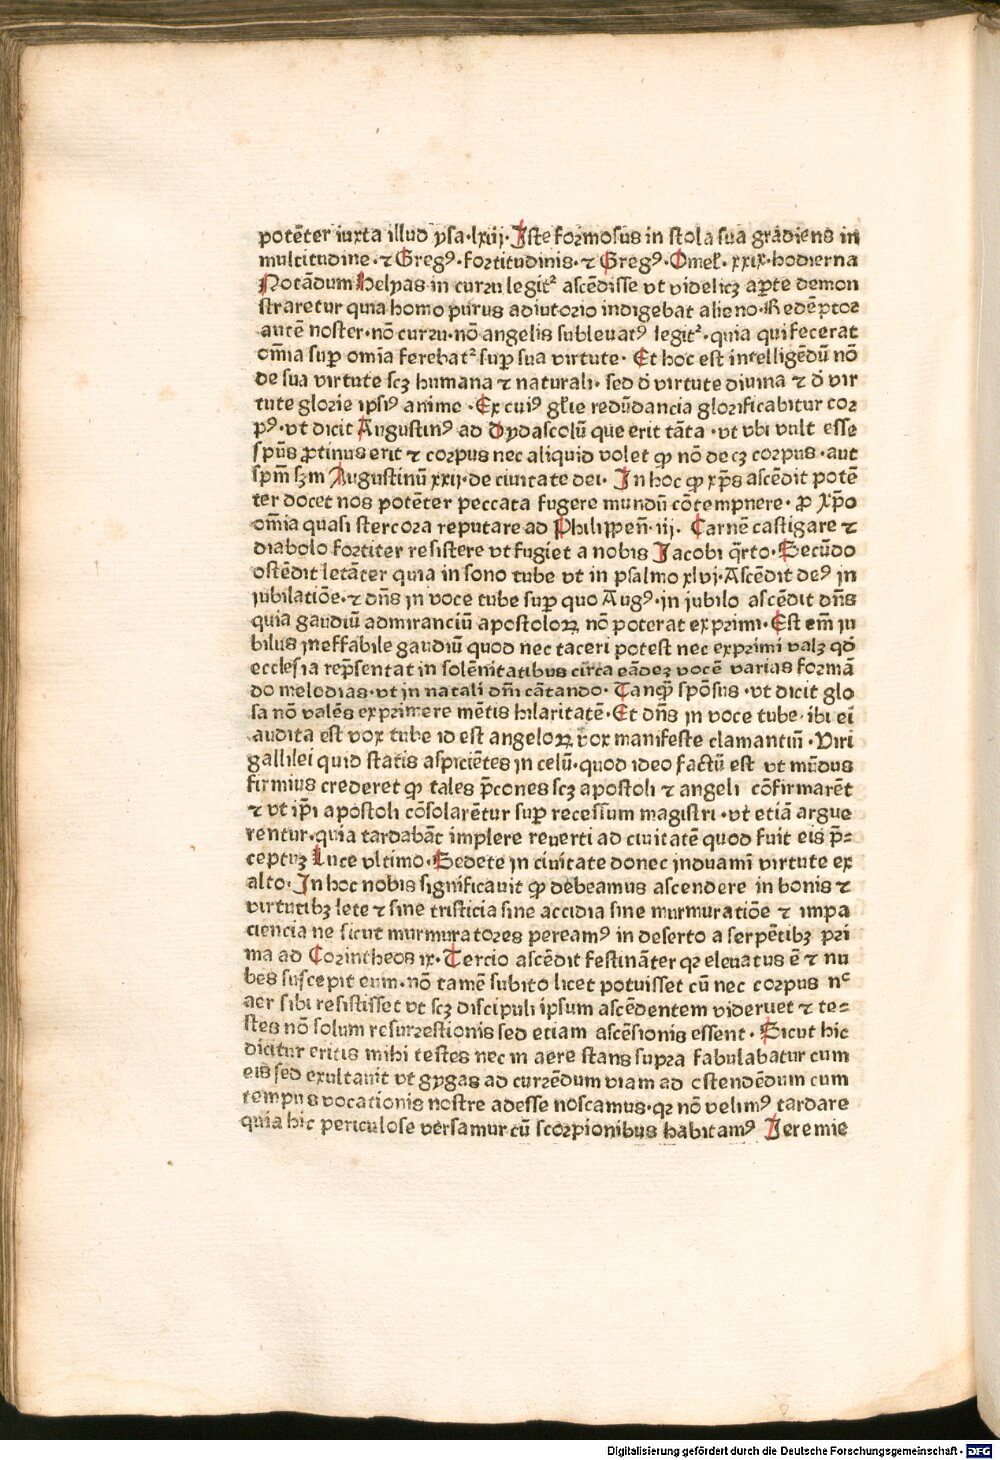 potēter iuxta illud ysa·lxiij· Iste formosus in stola sua gradiens in
multitudine·⁊ Gregꝰ·fortitudinis·⁊ Gregꝰ·Omeł·xxix·hodierna
Notādum helyas in curru legit᷑ ascēdisse vt videlicꝫ aꝑte demon
straretur quia homo purus adiutorio indigebat alieno·Redēptor
autē noster·nō curru·nō angelis subleuatꝰ legit᷑·quia qui fecerat
om̄ia suꝑ omīa ferebat᷑ suꝑ sua virtute· Et hoc est intelligēdū nō
de sua virtute scꝫ humana ⁊ naturali· sed d̄ virtute diuina ⁊ d̄ vir
tute glorie ipsiꝰ anime ·Ex cuiꝰ gł̄ie redūdancia glorificabitur cor
pꝰ·vt dicit Augustinꝰ ad Dydascolū que erit tāta ·vt vbi vult esse
spūs ꝓtinus erit ⁊ corpus nec aliquid volet ꝙ nō decꝫ corpus·aut
spm̄ sꝫm Augustinū xxij·de ciuitate dei· In hoc ꝙ xp̄s ascēdit potē
ter docet nos potēter peccata fugere mundū cōtempnere· ꝓ Xp̄o
om̄ia quasi stercora reputare ad Philippeñ·iij· Carnē castigare ⁊
diabolo fortiter resistere vt fugiet a nobis Jacobi q̄rto·Secūdo
ostēdit letāter quia in sono tube vt in psalmo xlvj·Ascēdit deꝰ in
iubilatiōe·⁊ dn̄s in voce tube suꝑ quo Augꝰ·in iubilo ascēdit dn̄s
quia gaudiū admiranciū apostoloꝝ nō poterat exprimi·Est em̄ iu
bilus ineffabile gaudiū quod nec taceri potest nec exprimi valꝫ qd̄
ecclesia rep̄sentat in solēnitatibus circa eādeꝫ vocē varias formā
do melodias·vt in natali dm̄ cātando· Tanꝙ̄ spōsus ·vt dicit glo
sa nō valēs exprimere mētis hilaritatē·Et dn̄s in voce tube·ibi ei
audita est vox tube id est angeloꝝ vox manifeste clamantiū·Viri
gallilei quid statis aspiciētes in celū·quod ideo factū est vt mūdus
firmius crederet ꝙ tales p̄cones scꝫ apostoli ⁊ angeli cōfirmarēt
⁊ vt ip̄i apostoli cōsolarētur suꝑ recessum magistri·vt etiā argue
rentur·quia tardabāt implere reuerti ad ciuitatē quod fuit eis p̄⸗
ceptuꝫ Luce vltimo·Sedete in ciuitate donec induamī virtute ex
alto· In hoc nobis significauit ꝙ debeamus ascendere in bonis ⁊
virtutibꝫ lete ⁊ sine tristicia sine accidia sine murmuratiōe ⁊ impa
ciencia ne sicut murmuratores pereamꝰ in deserto a serpētibꝫ pri
ma ad Corintheos ix·Tercio ascēdit festināter qꝛ eleuatus ē ⁊ nu
bes suscepit eum·nō tamē subito licet potuisset cū nec corpus nᶜ
aer sibi resistisset vt scꝫ discipuli ipsum ascēdentem videruet ⁊ te⸗
stes nō solum resurrestionis sed etiam ascēsionis essent· Sicut hic
dicitur eritis mihi testes nec in aere stans supra fabulabatur cum
eis sed exultauit vt gygas ad currēdum viam ad ostendēdum cum
tempus vocationis nostre adesse noscamus·qꝛ nō velimꝰ tardare
quia hic periculose versamur cū scorpionibus habitamꝰ Jeremie
Digitalisierung gefördert durch die Deutsche Forschungsgemeinschaft · DFG